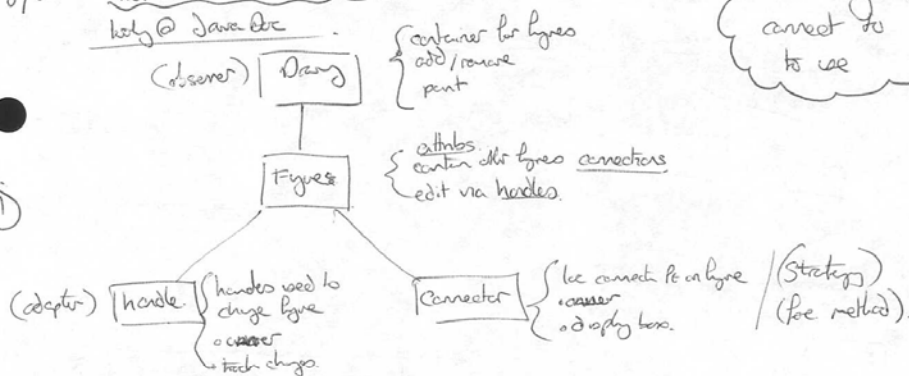 looking @ JavaDoc
(observer)
Drawing
container for figures
add/remove
paint
connect to
to use
Figures
attribs.
contain other figures connections
edit via handles.
1
(adapter)
handle
handles used to
change figure
owner
track changes.
Connector
loc connectn Pt on figure
owner
display box.
(Strategy)
(method).